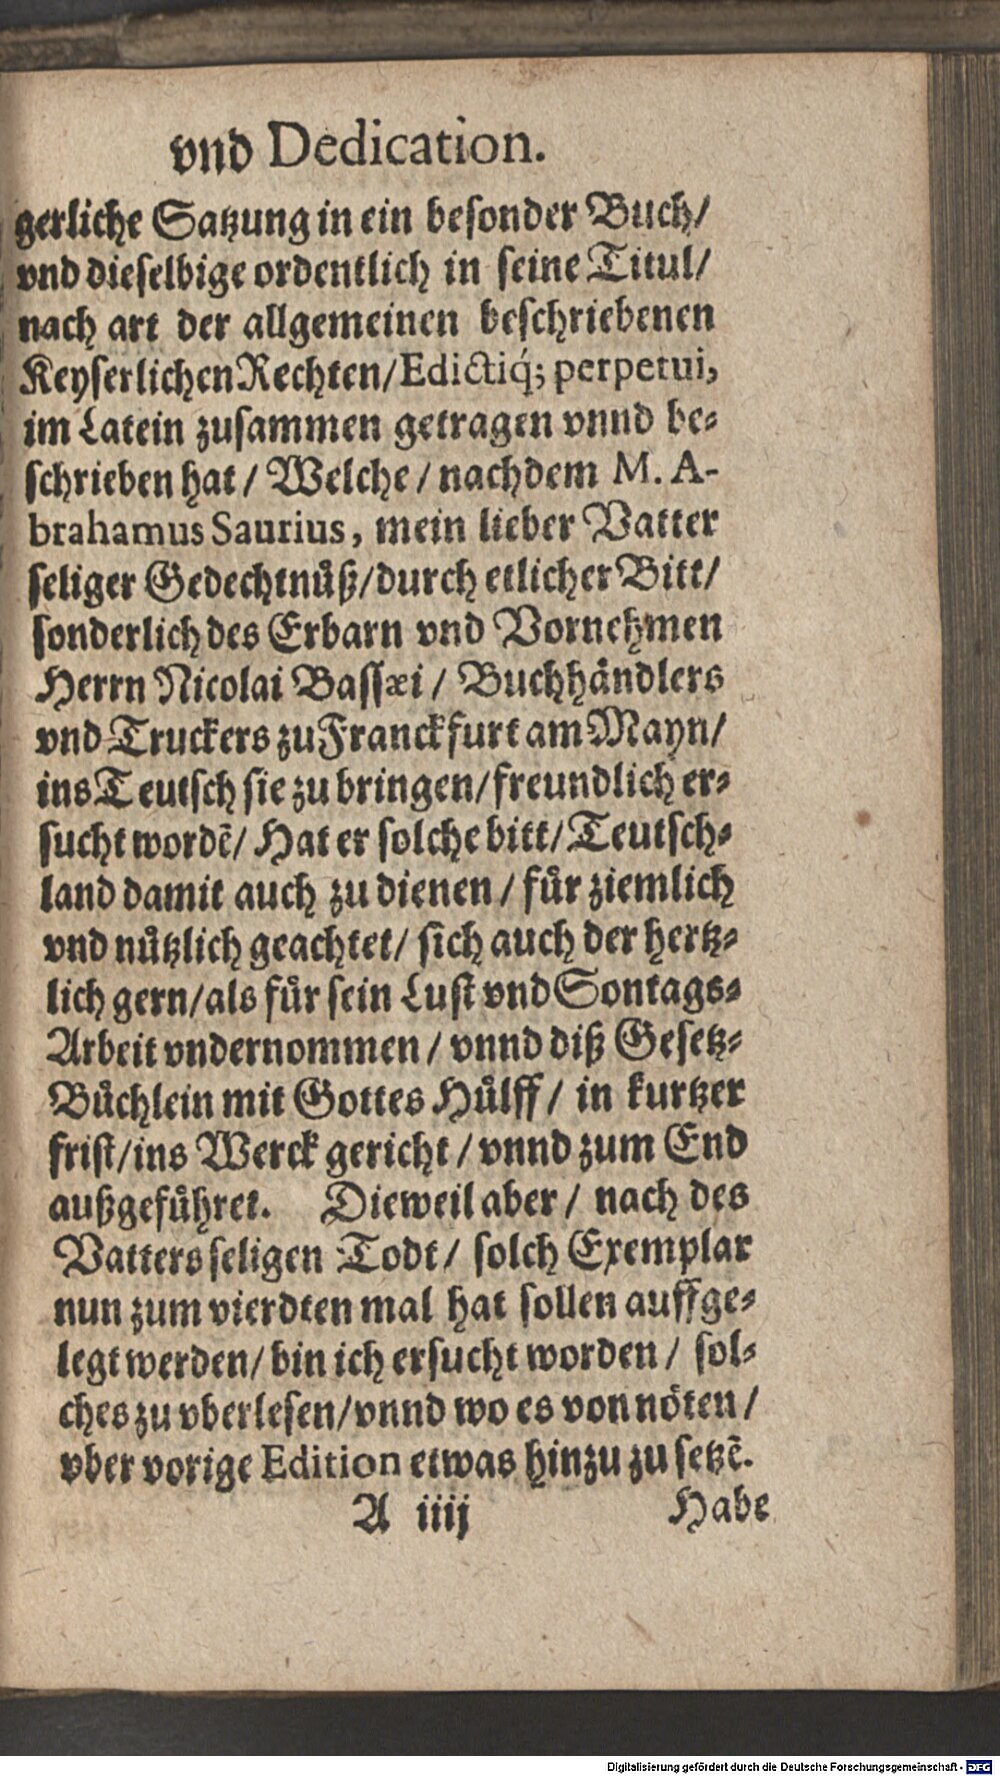 vnd Dedication.
gerliche Satzung in ein besonder Buch/
vnd dieselbige ordentlich in seine Titul/
nach art der allgemeinen beschriebenen
Keyserlichen Rechten/ Edictiq́; perpetui,
im Latein zusammen getragen vnnd be⸗
schrieben hat / Welche / nachdem M. A-
brahamus Saurius, mein lieber Vatter
seliger Gedechtnuͤß/ durch etlicher Bitt/
sonderlich des Erbarn vnd Vornehmen
Herrn Nicolai Bassæi / Buchhaͤndlers
vnd Truckers zu Franckfurt am Mayn/
ins Teutsch sie zu bringen/ freundlich er⸗
sucht wordẽ/ Hat er solche bitt/ Teutsch⸗
land damit auch zu dienen / fuͤr ziemlich
vnd nuͤtzlich geachtet/ sich auch der hertz⸗
lich gern/ als fuͤr sein Lust vnd Sontags⸗
Arbeit vndernommen / vnnd diß Gesetz⸗
Buͤchlein mit Gottes Huͤlff / in kurtzer
frist/ ins Werck gericht / vnnd zum End
außgefuͤhret. Dieweil aber / nach des
Vatters seligen Todt / solch Exemplar
nun zum vierdten mal hat sollen auffge⸗
legt werden/ bin ich ersucht worden / sol⸗
ches zu vberlesen/ vnnd wo es von noͤten /
vber vorige Edition etwas hinzu zu setzẽ.
A iiij Habe
Digitalisierung gefördert durch die Deutsche Forschungsgemeinschaft - DFG